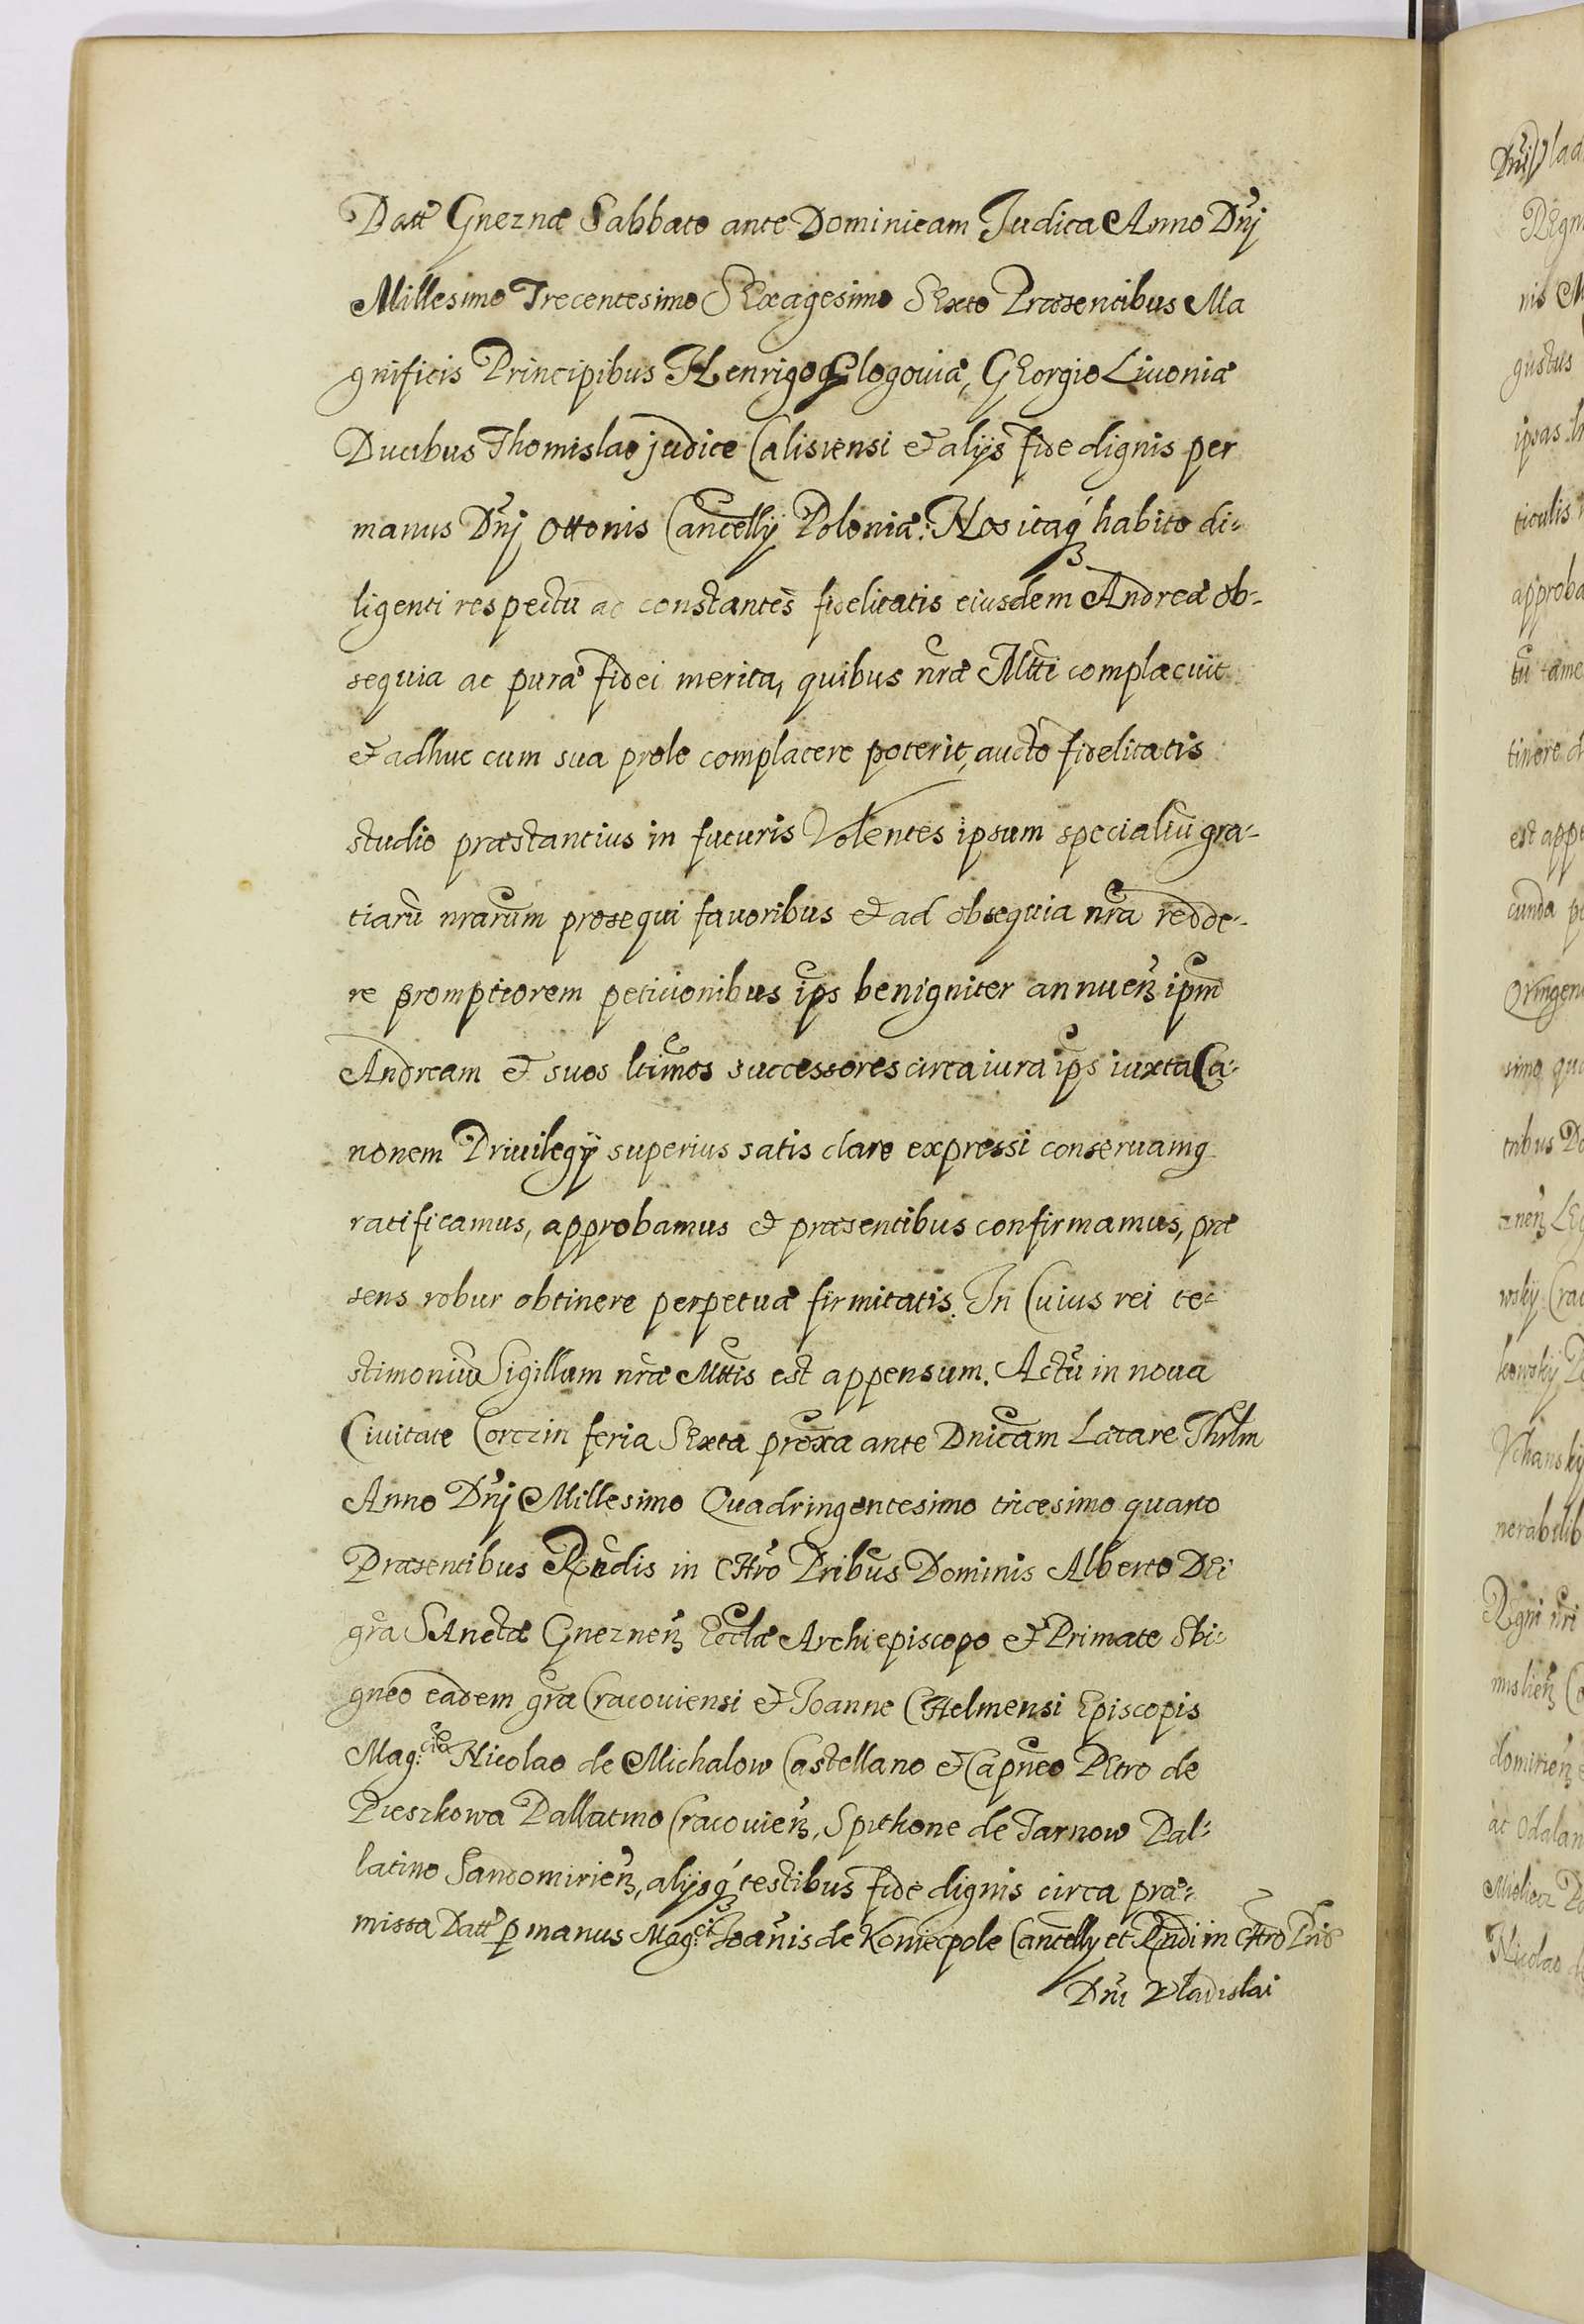 Datt Gneznæ Sabbato ante Dominicam Judica Anno Dnj
Millesimo Trecentesimo SExagesimo SExto Præsentibus Ma
gnificis Principibus Henrigo Glogoviæ, GEorgio Livoniæ
Ducibus Thomislao judice Calisiensi et alijs fide dignis per
manus Dnj Ottonis Cancellij Poloniæ: Nos itaq habito di-
ligenti respectu ac constantes fidelitatis eiusdem Andreæ ob-
sequia ac puræ fidei merita, quibus nræ Mtti complacuit
et adhuc cum sua prole complacere poterit, aucto fidelitatis
studio præstantius in futuris Volentes ipsum specialiu gra-
tiaru nrarum prosequi favoribus et ad obsequia nra redde-
re promptiorem peticionibus ips benigniter annuen ipm
Andream et suos ltimos successores circa iura ips iuxta Ca-
nonem Privilegij superius satis clare expressi conservamg
ratificamus, approbamus et præsentibus confirmamus, præ
sens robur obtinere perpetuæ firmitatis. In Cuius rei te-
stimoniu Sigillum nræ Mttis est appensum. Actu in nova
Civitate Corczin feria SExta proxa ante Dnicam Lætare Jhrlm
Anno Dnj Millesimo Quadringentesimo tricesimo quarto
Præsentibus Rndis in CHro Pribus Dominis Alberto DEi
gra SAnctæ Gneznen Ecclæ Archiepiscopo et Primate Sbi-
gneo eadem gra Cracoviensi et Joanne CHelmensi Episcopis
Mag:cis Nicolao de Michalow Castellano et Capneo PEtro de
Pieszkowa Pallatino Cracovien, Spithone de Tarnow Pal-
latino Sandomirien, alijsq testibus fide dignis circa præ-
missa Datt p manus Mag:ci Joanis de Koniecpole Cancellij et Rndi in CHro Pris
Dni Vladislai